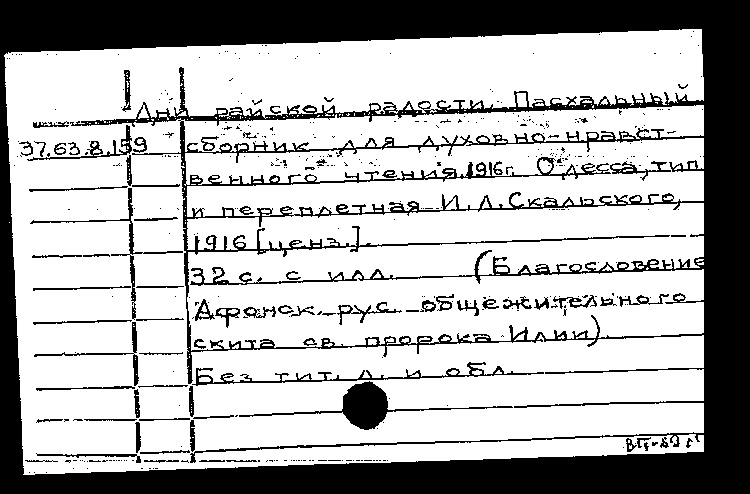 Дни райской радости. Пасхальный
37.63.8.159 сборник для духовно-нравст-
венного чтения. 1916г. Одесса, тип.
и переплетная И.Л. Скальского,
1916 [ценз.].
32 с. с илл. (Благословение
Афонск. рус. общежительного
скита св. пророка Илии)
Без тит. л. и обл.